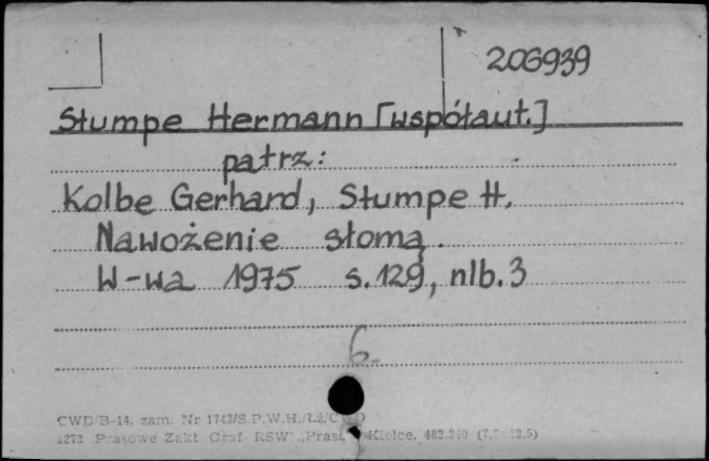 206939
Stumpe Hermann [współaut.]
patrz:
Kolbe Gerhard, Stumpe H.
Nawożenie słomą.
W-wa 1975 s. 129, nlb. 3
6.
CWD/B-14. zam. Nr 1743/S.P.W.H./Łż/C
1273 Prasowe Zakł. Graf. RSW „Prasa Kielce, 483.340